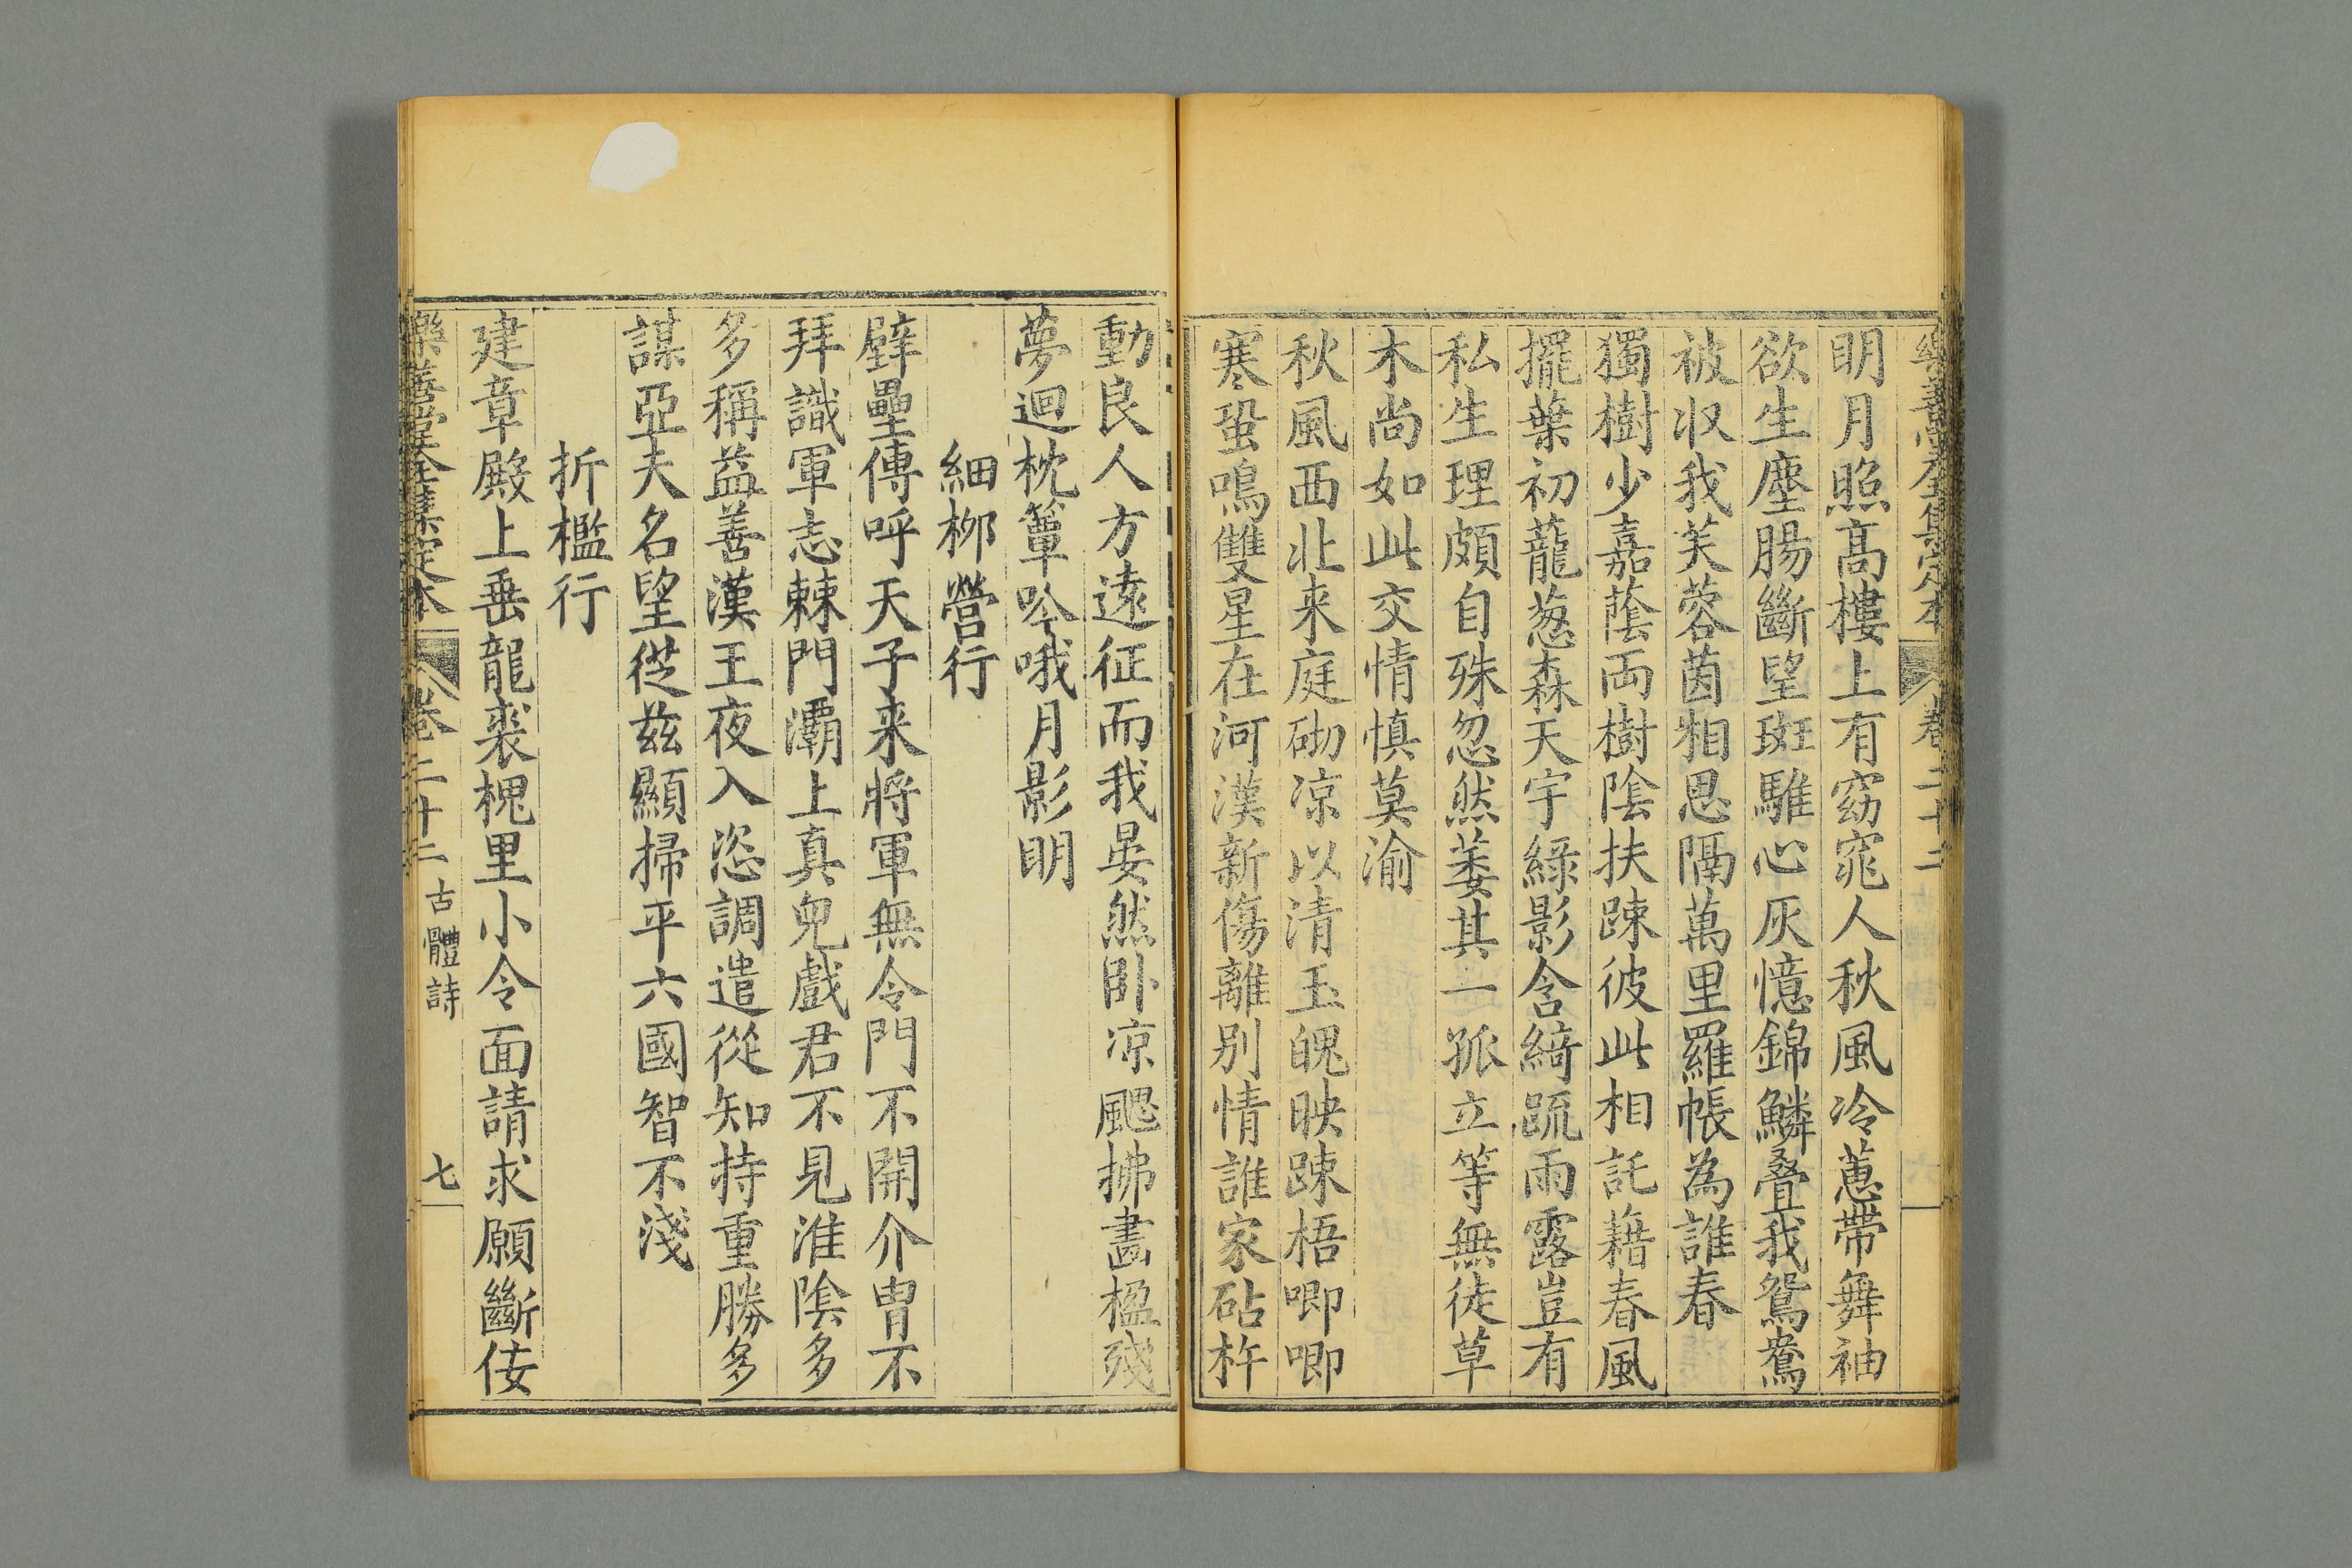 樂善堂全集定本 卷二十二
明月照髙樓上有窈窕人秋風冷蕙帶舞袖
欲生塵腸斷望斑騅心灰憶錦鱗疊我鴛鴦
被収我芙蓉茵相思隔萬里羅帳為誰春
獨樹少嘉蔭両樹陰扶踈彼此相託藉春風
擺葉初蘢葱森天宇綠影含綺䟽雨露豈有
私生理頗自殊忽然萎其一孤立等無徒草
木尚如此交情慎莫渝
秋風西北来庭砌凉以清玉魄映踈梧唧唧
寒蛩鳴雙星在河漢新傷離别情誰家砧杵
動良人方逺征而我晏然卧凉颸拂畵楹殘
夢迴枕簟吟哦月影明
細栁營行
壁壘傳呼天子来將軍無令門不開介冑不
拜識軍志棘門灞上真兒戲君不見淮陰多
多稱益善漢王夜入恣調遣從知持重勝多
謀亞夫名望從兹顯掃平六國智不淺
折檻行
建章殿上垂龍裘槐里小令面請求願斷佞
樂善堂全集定本 卷二十二 古體詩 七